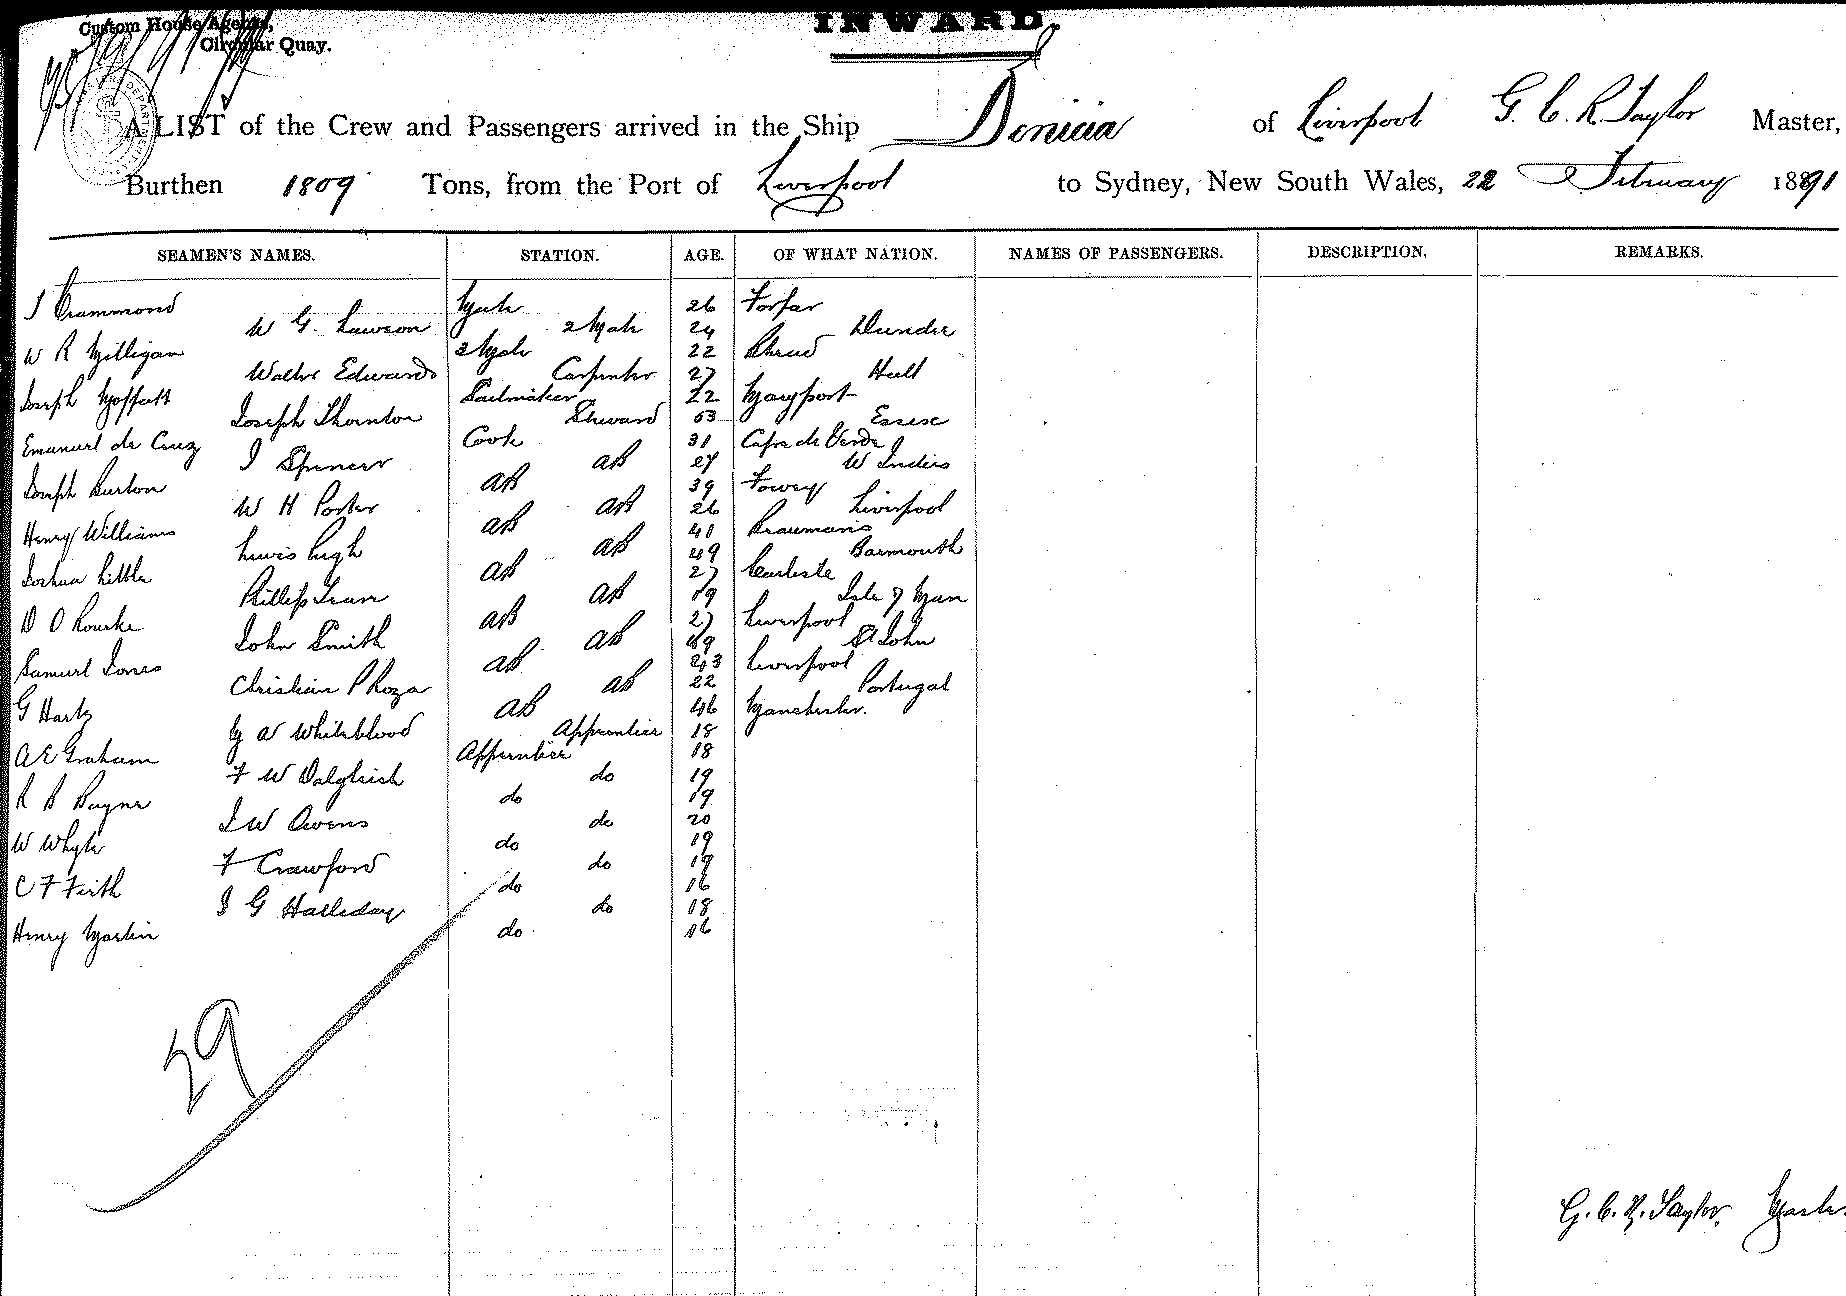 Custom House Agents,
Circular Quay.
INWARD.
A LIST of the Crew and Passengers arrived in the Ship Dinicia of Liverpool G. C. R. Taylor Master,
Burthen 1809 Tons, from the Port of Liverpool to Sydney, New South Wales, 22 February 1891
SEAMEN'S NAMES. STATION. AGE. OF WHAT NATION. NAMES OF PASSENGERS. DESCRIPTION. REMARKS.
J Drummond Mate 26 Forfar
W G Lawson 2 Mate 24 Dundee
W R Milligan 3 Mate 22
Walter Edwards Carpenter 27 Hull
Joseph Moffatt Sailmaker 22 Maryport
Joseph Thornton Steward 53 Essex
Emanuel de Cruz Cook 31 Cape de Verde
J Spencer AB 27 W Indies
Joseph Burton AB 39 Fowey
W H Porter AB 26 Liverpool
Henry Williams AB 41 Beaumaris
Lewis Pugh AB 49 Barmouth
Joshua Little AB 27 Carlisle
Phillip AB 19 Isle of Man
D O Rourke AB 27 Liverpool
John Smith AB St John
Samuel Jones AB 23 Liverpool
Christian P Roza AB 22 Portugal
G Hartz AB 46 Manchester.
M W Whiteblood Apprentice 18
A E Graham Apprentice 18
F W Dalgleish do 19
R B Bayne do 19
J W Owens do 20
W Whyte do 19
F Crawford do 19
C F Firth do 16
J G Halliday do 18
Henry Martin do 16
29
G. C. R. Taylor, Master